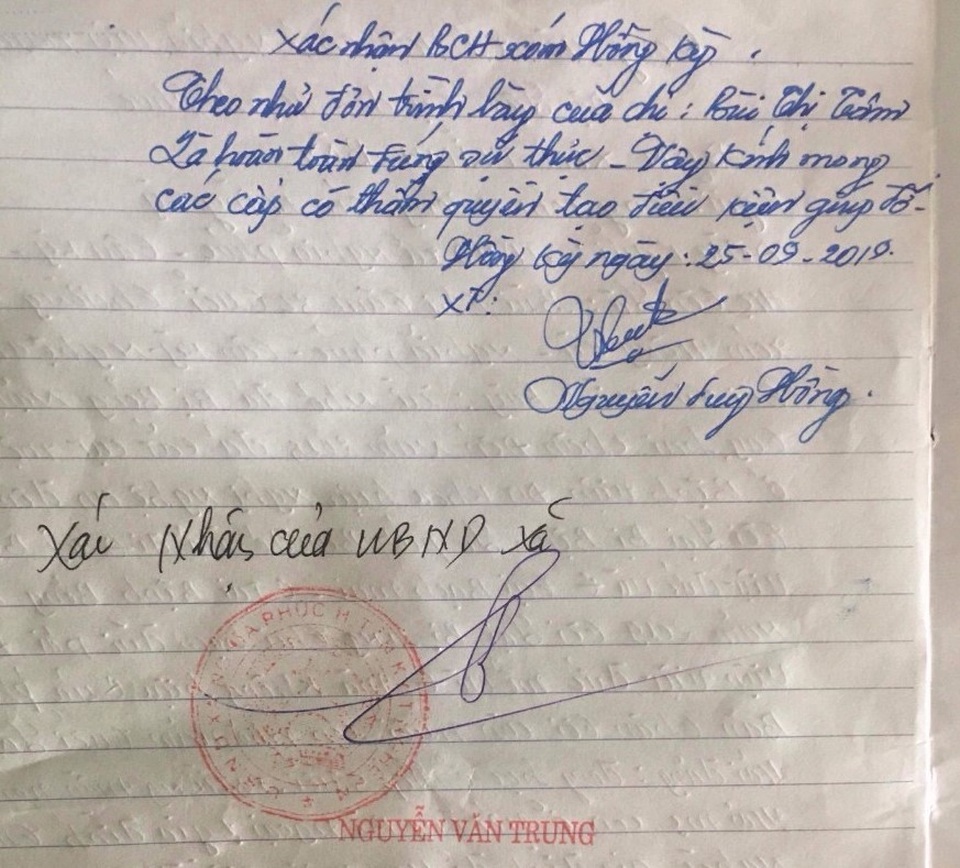 Xác nhận BCH xóm Hồng Kỳ.
Theo như đơn trình bày của chị: Bùi Thị Tâm
Là hoàn toàn đúng sự thực - Vậy kính mong
các cấp có thẩm quyền tạo điều kiện giúp đỡ -
Hồng Kỳ ngày: 25-09-2019.
XT:
Nguyễn Duy Hồng.
Xác Nhận của UBND xã
NGHĨA PHÚC H. TÂN KỲ T. NGHỆ AN
NGUYỄN VĂN TRUNG